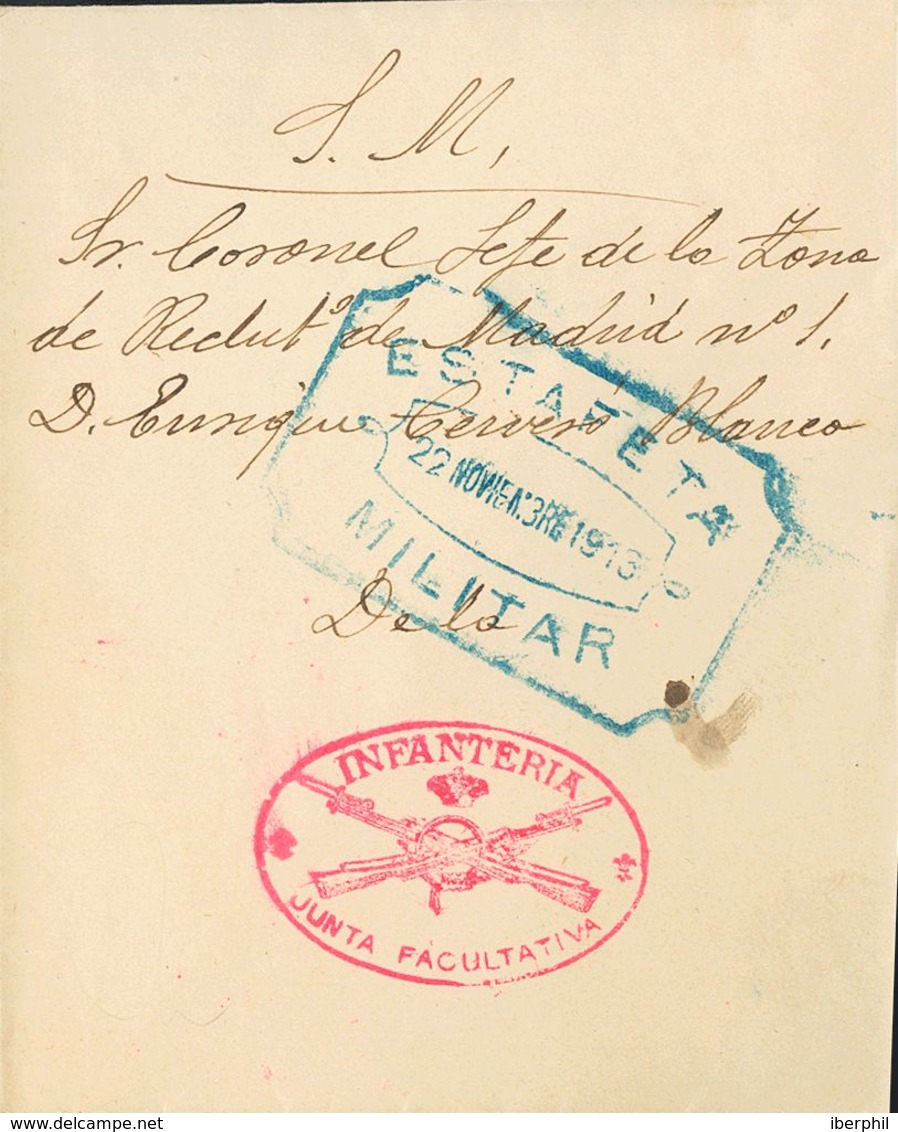 S. M,
Sr. Coronel Jefe de la Zona
de Reclutº de Madrid nº 1.
D. Enrique Cerveró Blanco
ESTAFETA
22 NOVIEMBRE 1913
MILITAR
De la
INFANTERIA
JUNTA FACULTATIVA
delcampe.net
iberphil